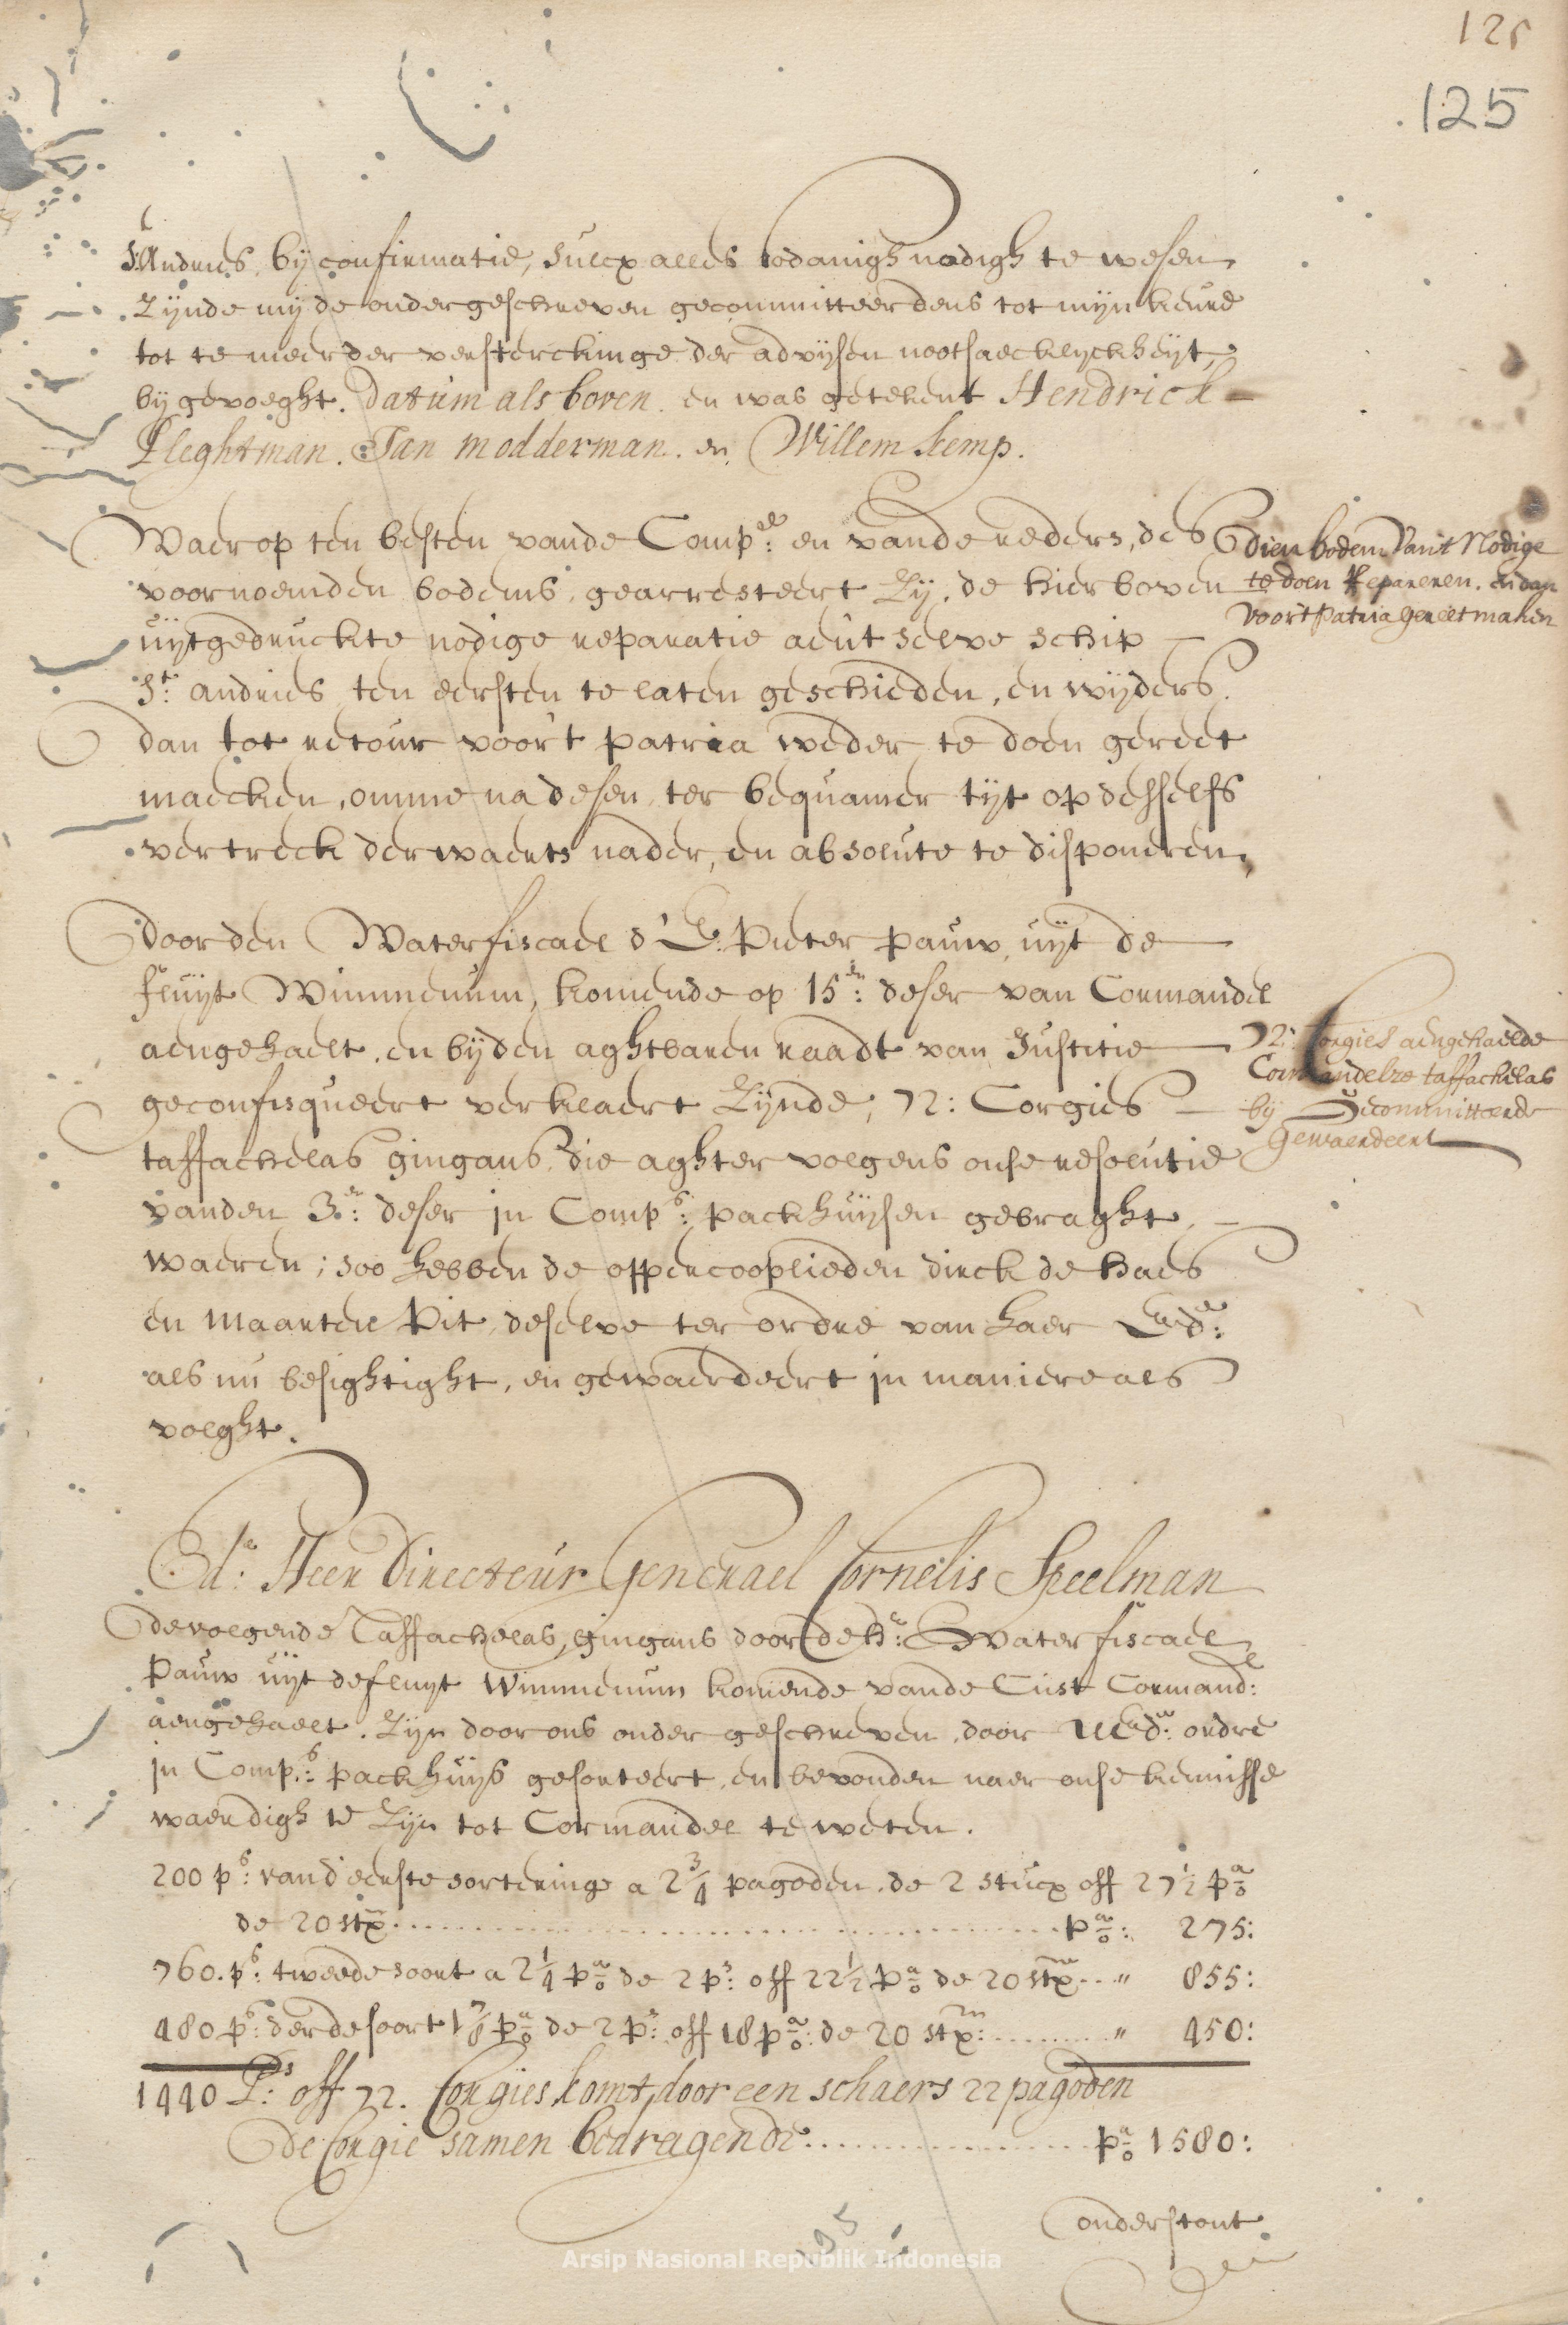 125
125
St Andries, bij confirmatie, sulcx alles sodanigh nodigh te wesen
Zijnde mij de ondergeschreven gecommitteerdens tot mijn keure
tot te meerder versterckinge der advijsen nootsaecklyckheijt,
bij gevoeght. Datum als boven. en was getekent Hendrick
Pleghtman. Jan Modderman. en Willem Kemp.
Waer op ten besten vande Comp:e en vande reders, des
voornoemden bodems, gearresteert Zij, de hier boven
uijtgedruckte nodige reparatie aen't selve schip
St: andries ten eersten te laten geschieden, en wijders
dan tot retour voor't patria weder te doen gereet
maecken, omme na desen, ter bequamer tijt op desselfs
vertreck derwaerts nader, en absolute te disponeren.
dien bodem van't Nodige
te doen Repareren. en dan
voor't Patria gereet maken
door den Waterfiscael d'E: Pieter Pauw, uijt de
fluijt Wimmenum, komende op 15:en deser van Cormandel
aengehaelt, en bij den aghtbaren raadt van Justitie
geconfisqueert verklaert Zijnde, 72: Corgies
taffachelas gingans, die aghter volgens onse resolutie
vanden 3:en deser in Comp:s packhuijsen gebraght,
waeren; soo hebben de opper cooplieden dirck de haes
en Maarten Pit, deselve ter ordre van haer Ed:e
als nu besightight, en gewaerdeert in maniere als
volght.
72: Corgies aengehaelde
Cormandelze taffachelas
bij Gecommitteerde
Gewaerdeert
Ed:e Heer Directeur Generael Cornelis Speelman
de volgende Taffachelas, gingans door de hr: Waterfiscael
Pauw uijt de fluyt Wimmenum komende vande Cust Cormand:l
aengehaelt. Zijn door ons onder geschreven, door UEd:e ordre
in Comp:s packhuys gesorteert, en bevonden naer onse kennisse
waerdigh te Zijn tot Cormandel te weten.
200 p:s vand' eerste sorteringe a 2 3/4 pagoden. de 2 stucx off 27 1/2 pao
de 20 stx ..... pao: 275:
760. p:s tweede soort a 2 1/4 pao de 2 p:s off 22 1/2 pao de 20 stx .. " 855:
480 p:s derde soort 1 7/8 pao de 2 p:s off 18 pao: de 20 stx: ..... " 450:
1440 P:s off 72. Corgies komt door een schaers 22 pagoden
de Corgie samen bedragende ..... pao 1580:
onderstont
Arsip Nasional Republik Indonesia